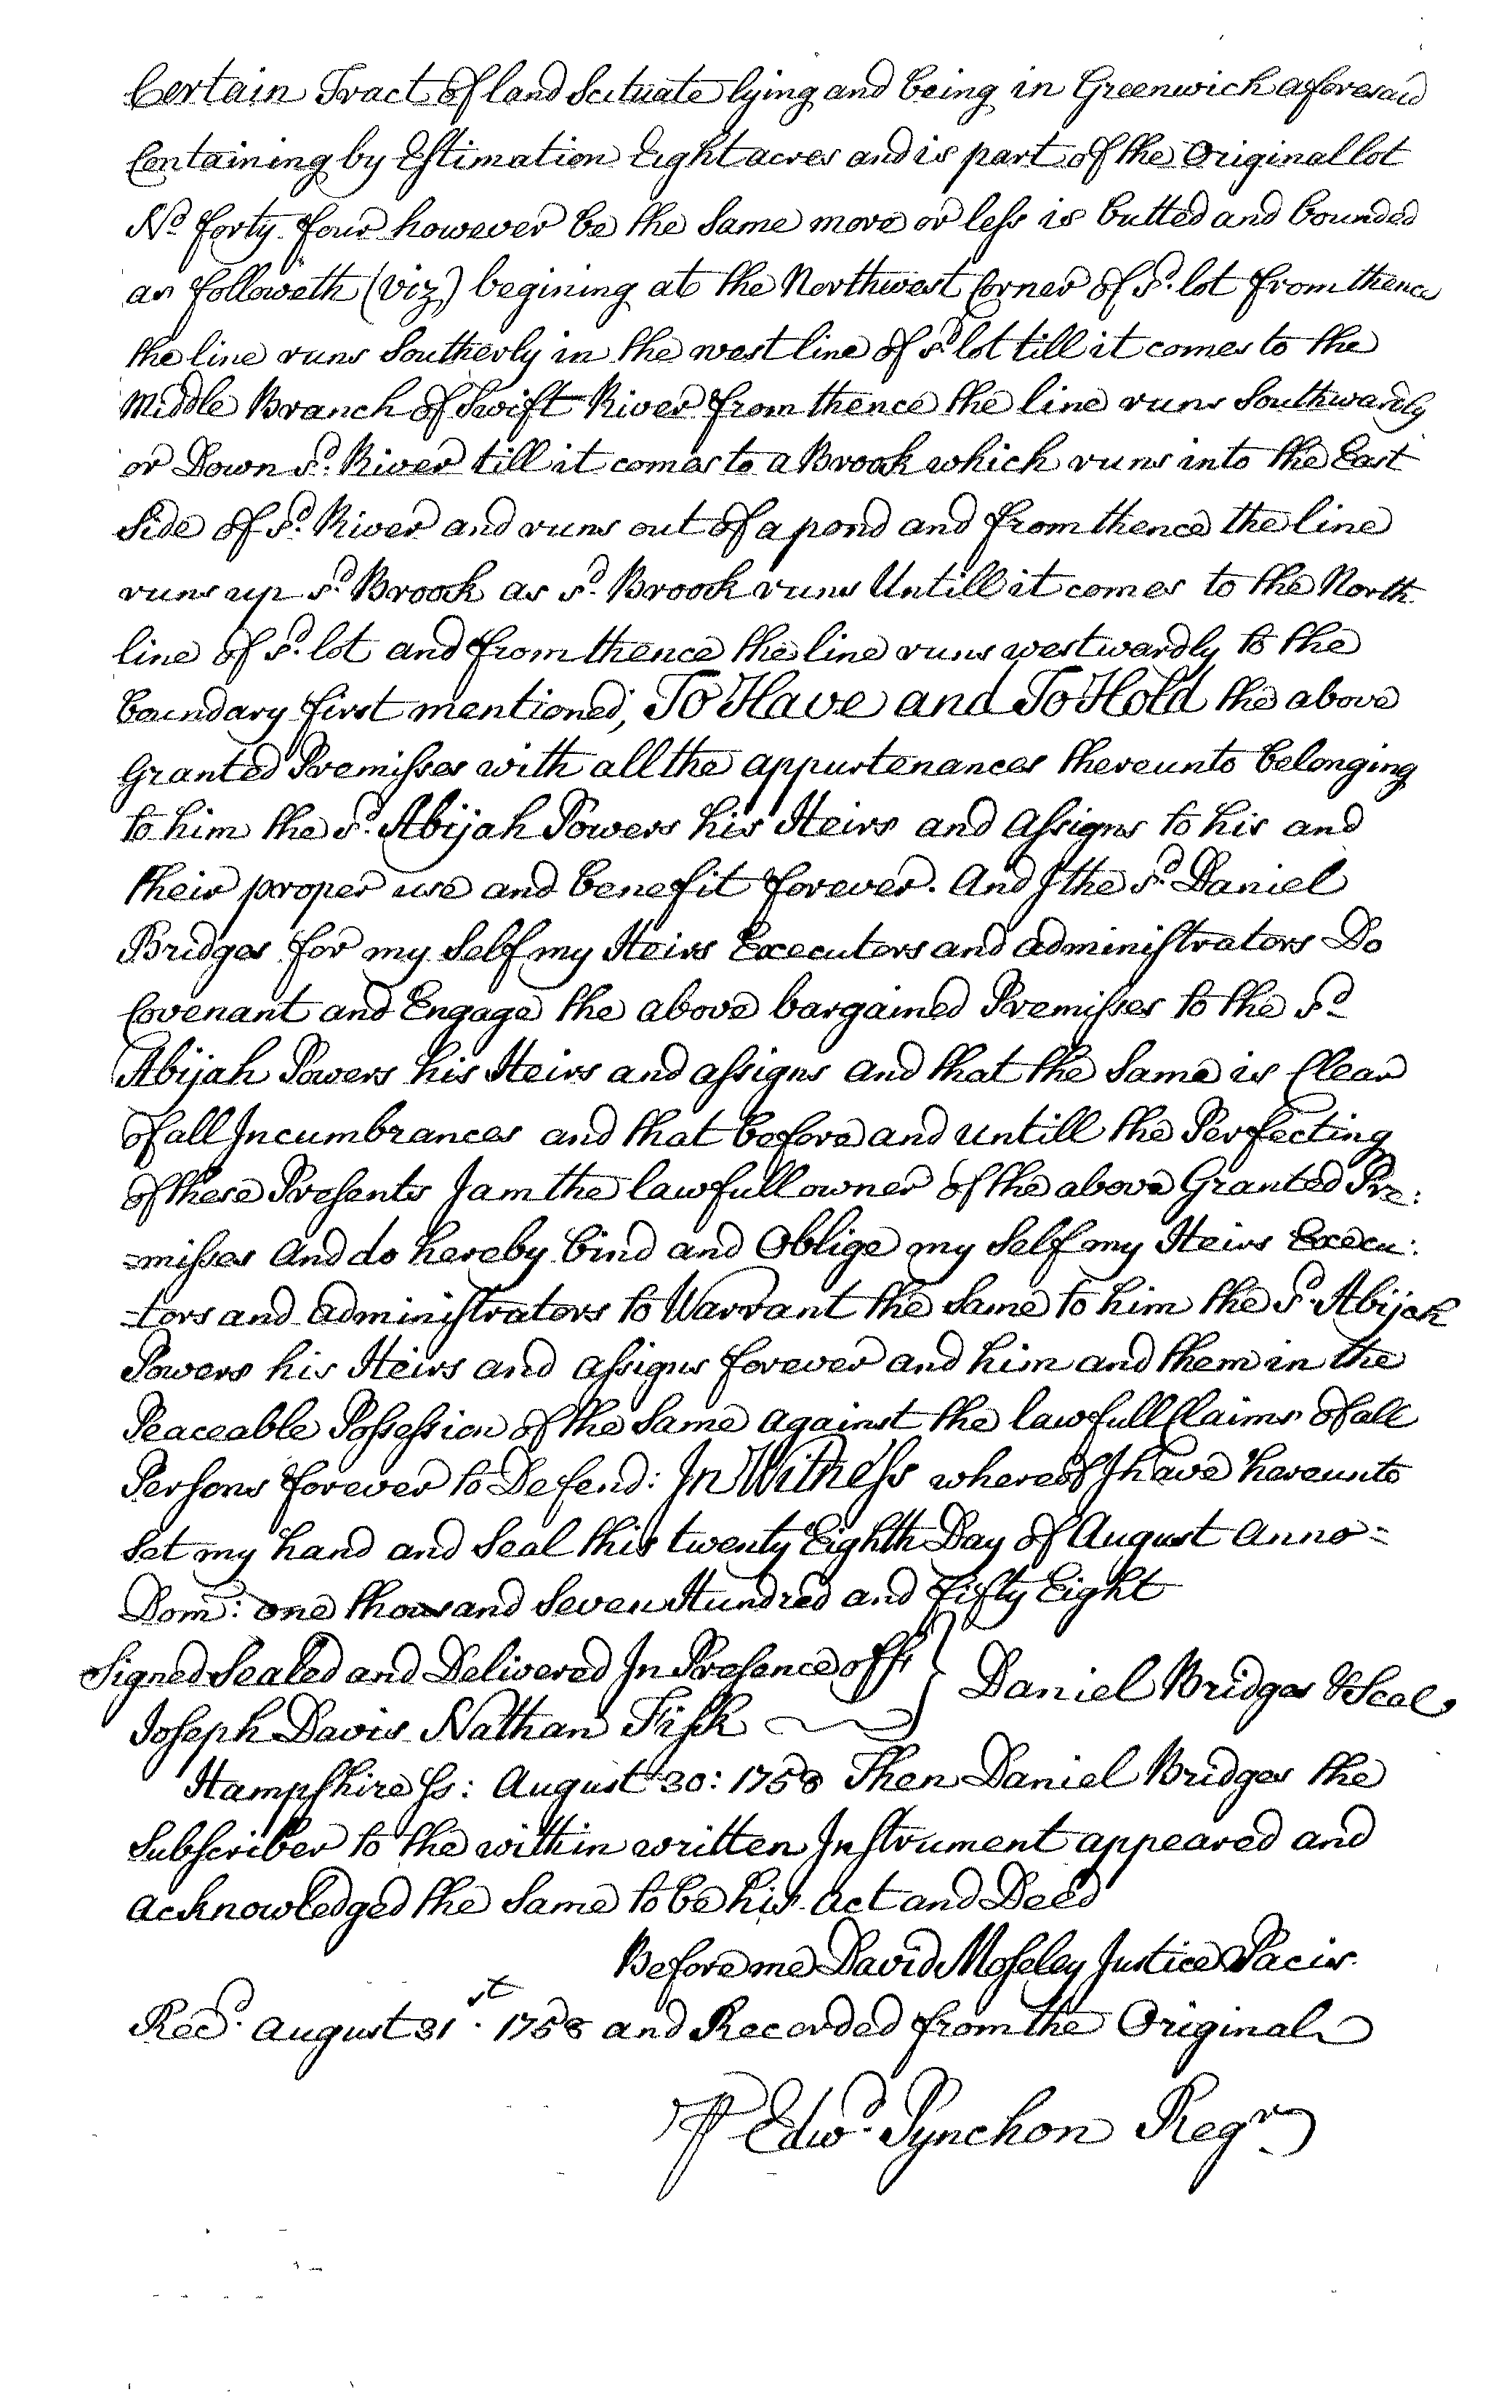 Certain Tract of land Scituate lying and being in Greenwich aforesaid
Containing by Estimation Eight acres and is part of the Original lot
No. forty four however be the Same more or less is butted and bounded
as followeth (viz) begining at the Northwest Corner of sd. lot from thence
the line runs Southerly in the west line of sd. lot till it comes to the
Middle Branch of Swift River from thence the line runs Southwardly
or Down sd. River till it comes to a Brook which runs into the East
Side of sd. River and runs out of a pond and from thence the line
runs up sd. Brook as sd. Brook runs Untill it comes to the North
line of sd. lot and from thence the line runs westwardly to the
boundary first mentioned, To Have and To Hold the above
Granted Premisses with all the appurtenances thereunto belonging
to him the sd. Abijah Powers his Heirs and assigns to his and
their proper use and benefit forever. And I the sd. Daniel
Bridges for my Self my Heirs Executors and administrators Do
Covenant and Engage the above bargained Premisses to the sd
Abijah Powers his Heirs and assigns and that the Same is Clear
of all Incumbrances and that before and untill the Perfecting
of these Presents I am the lawfull owner of the above Granted Pre:
=misses And do hereby bind and Oblige my Self my Heirs Execu:
=tors and administrators to Warrant the Same to him the sd. Abijah
Powers his Heirs and assigns forever and him and them in the
Peaceable Possession of the Same against the lawfull Claims of all
Persons forever to Defend: In Witness whereof I have hereunto
Set my hand and Seal this twenty Eighth Day of August Anno=
Dom: one thousand Seven Hundred and Fifty Eight
Signed Sealed and Delivered In Presence off } Daniel Bridges & Seal
Joseph Davis Nathan Fisk
Hampshire ss: August 30: 1758 Then Daniel Bridges the
Subscriber to the within written Instrument appeared and
acknowledged the Same to be his act and Deed
Before me David Moseley Justice Pacis.
Recd. august 31st. 1758 and Recorded from the Original
P Edwd. Pynchon Regr